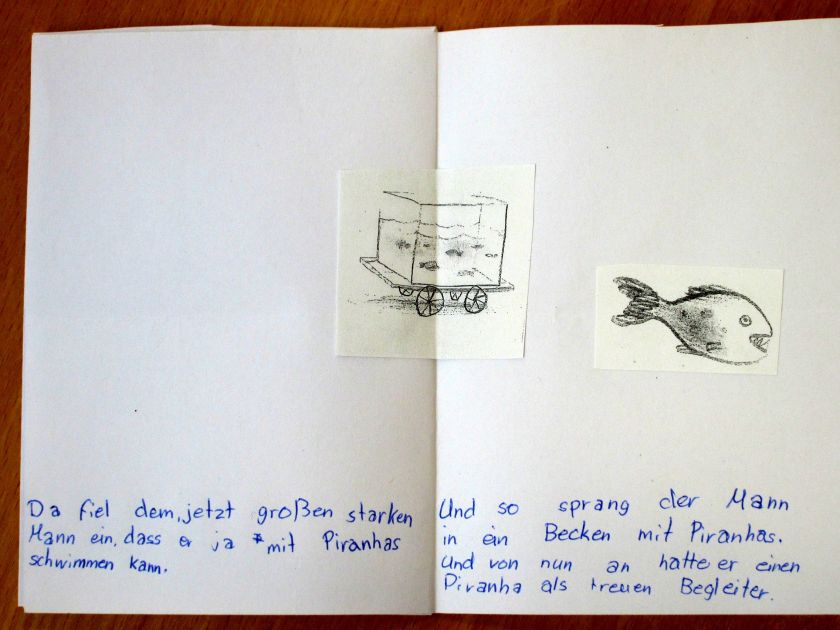 Da fiel dem, jetzt großen starken
Mann ein, dass er ja * mit Piranhas
schwimmen kann.
Und so sprang der Mann
in ein Becken mit Piranhas.
Und von nun an hatte er einen
Piranha als treuen Begleiter.